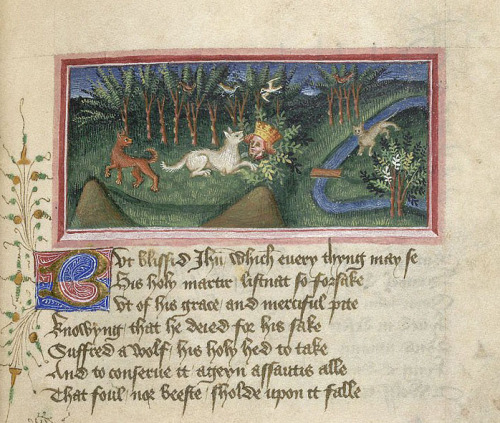 But blissid Ihu which euery thyng may se
His holy martir list nat so forsake
But of his grace and merciful pite
Knowyng that he deied for his sake
Suffred a wolf his holy hed to take
And to conserue it ageyn assautis alle
That foul nor beeste sholde upon it falle